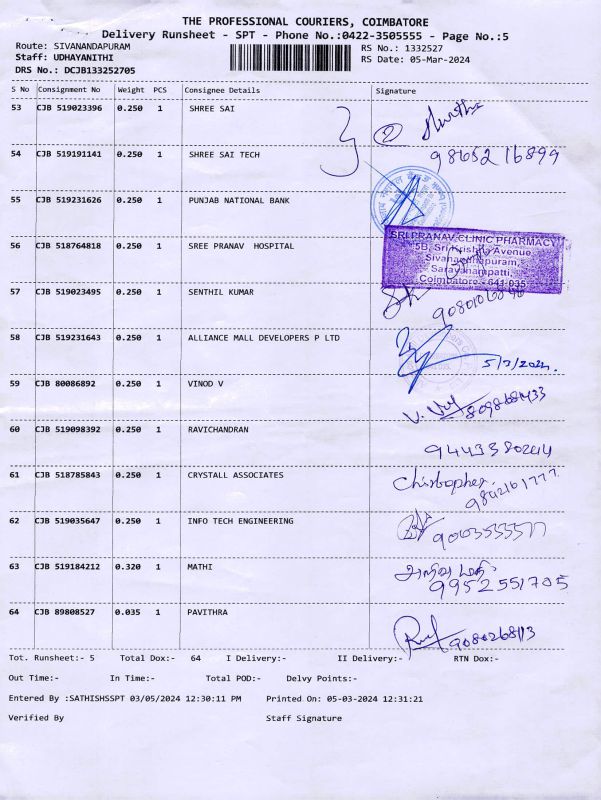 THE PROFESSIONAL COURIERS, COIMBATORE
Delivery Runsheet - SPT - Phone No.:0422-3505555 - Page No.:5
Route: SIVANANDAPURAM RS No.: 1332527
Staff: UDHAYANITHI RS Date: 05-Mar-2024
DRS No.: DCJB133252705
S No Consignment No Weight PCS Consignee Details Signature
53 CJB 519023396 0.250 1 SHREE SAI
2
54 CJB 519191141 0.250 1 SHREE SAI TECH 98652 16899
55 CJB 519231626 0.250 1 PUNJAB NATIONAL BANK
SRI PRANAV CLINIC PHARMACY
56 CJB 518764818 0.250 1 SREE PRANAV HOSPITAL 5B, Sri Krishna Avenue
Sivanandhapuram,
Saravanampatti,
Coimbatore - 641 035
57 CJB 519023495 0.250 1 SENTHIL KUMAR
58 CJB 519231643 0.250 1 ALLIANCE MALL DEVELOPERS P LTD
59 CJB 80086892 0.250 1 VINOD V
60 CJB 519098392 0.250 1 RAVICHANDRAN
61 CJB 518785843 0.250 1 CRYSTALL ASSOCIATES Christopher.
62 CJB 519035647 0.250 1 INFO TECH ENGINEERING
63 CJB 519184212 0.320 1 MATHI
9952551705
64 CJB 89808527 0.035 1 PAVITHRA 9080268113
Tot. Runsheet:- 5 Total Dox:- 64 I Delivery:- II Delivery:- RTN Dox:-
Out Time:- In Time:- Total POD:- Delvy Points:-
Entered By :SATHISHSSPT 03/05/2024 12:30:11 PM Printed On: 05-03-2024 12:31:21
Verified By Staff Signature